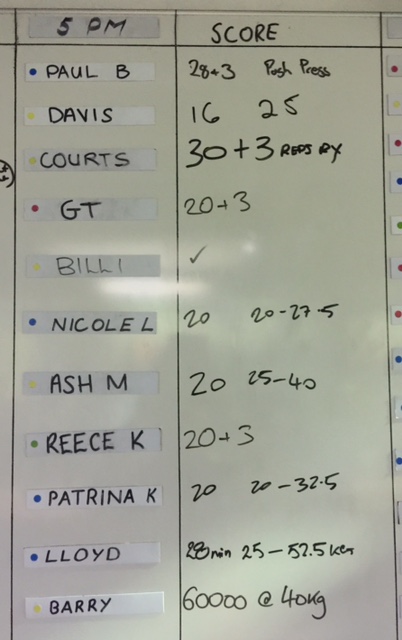 5 PM SCORE
PAUL B 28+3 Push Press
DAVIS 16 25
COURTS 30+3 REPS RX
GT 20+3
BILLI ✓
NICOLE L 20 20-27.5
ASH M 20 25-40
REECE K 20+3
PATRINA K 20 20-32.5
LLOYD 28min 25-52.5
BARRY 60000 @ 40kg